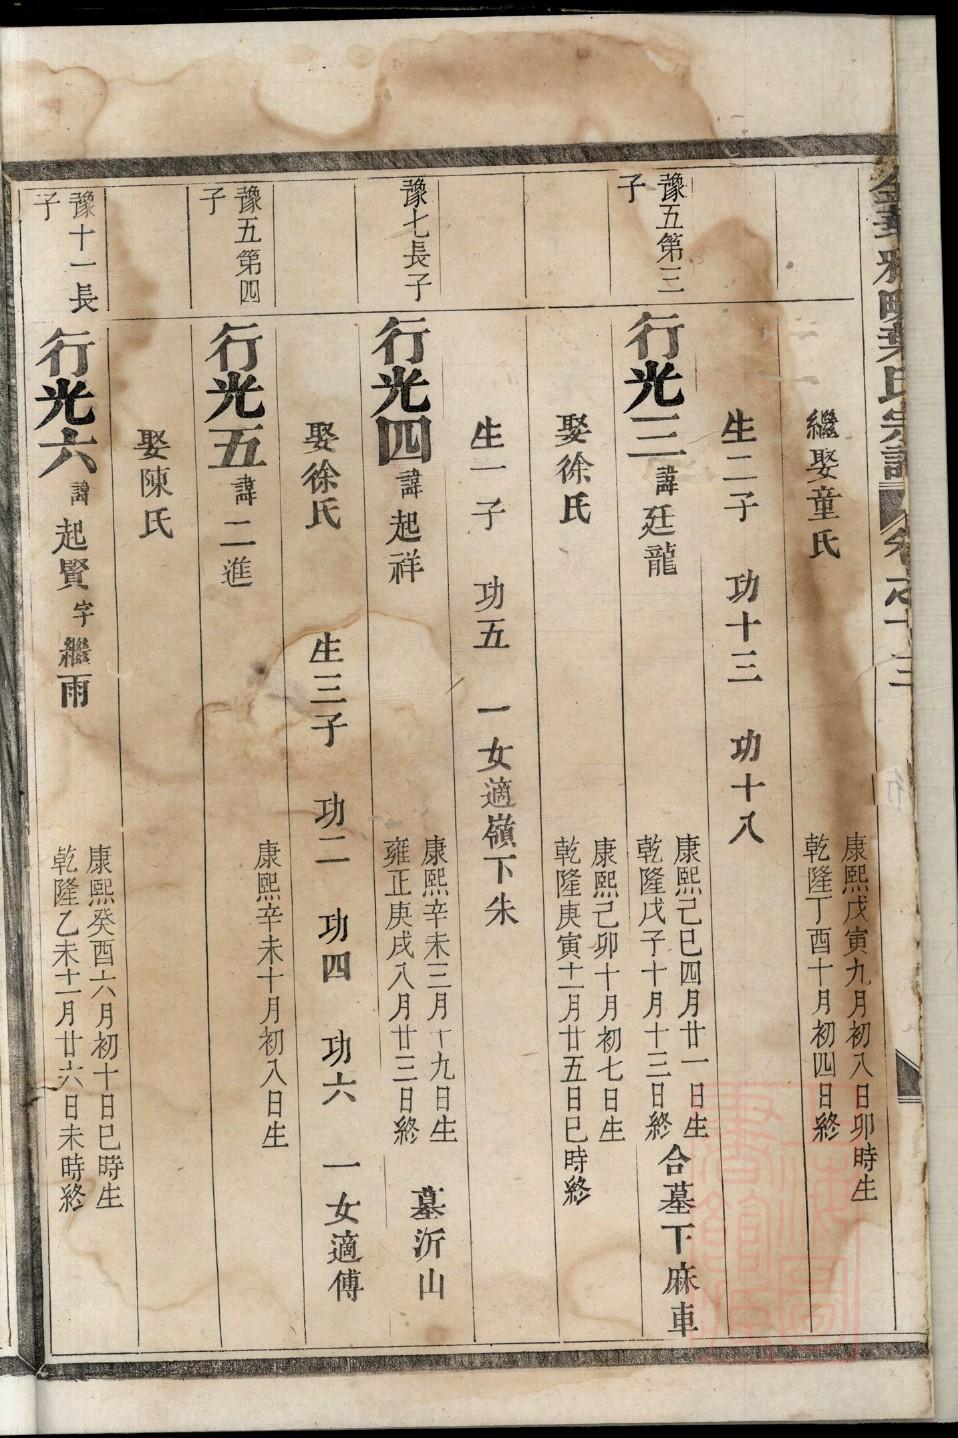 葉氏宗譜 卷之十三
繼娶童氏 康熙戊寅九月初八日卯時生
乾隆丁酉十月初四日終
生二子 功十三 功十八
豫五第三子
行光三 諱廷龍 康熙己巳四月廿一日生
乾隆戊子十月十三日終 合墓下麻車
娶徐氏 康熙己卯十月初七日生
乾隆庚寅十一月廿五日巳時終
生一子 功五 一女適嶺下朱
豫七長子
行光四 諱起祥 康熙辛未三月十九日生
雍正庚戌八月廿三日終 墓沂山
娶徐氏 生三子 功二 功四 功六 一女適傅
豫五第四子
行光五 諱二進 康熙辛未十月初八日生
娶陳氏
豫十一長子
行光六 諱起賢 字繼雨 康熙癸酉六月初十日巳時生
乾隆乙未十一月廿六日未時終